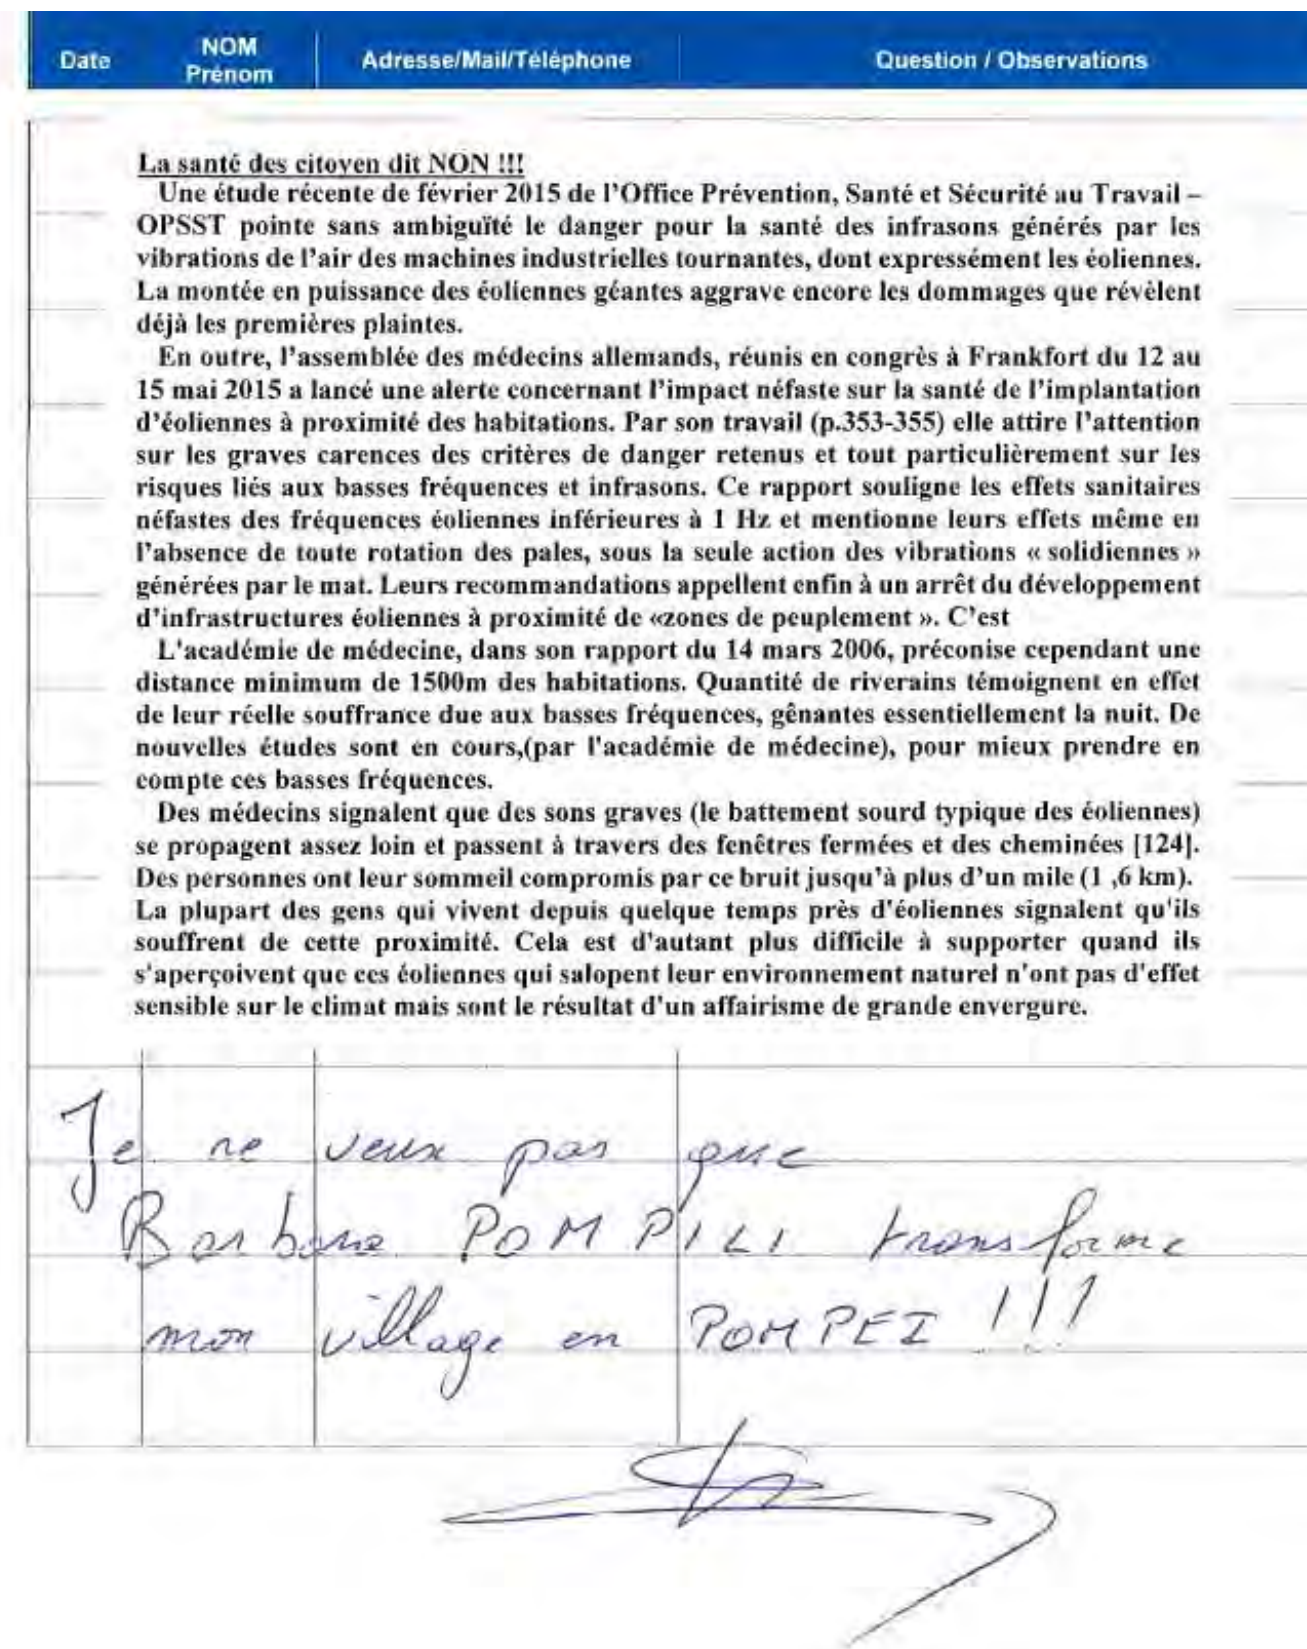 Date NOM Prénom Adresse/Mail/Téléphone Question / Observations
La santé des citoyen dit NON !!!
Une étude récente de février 2015 de l'Office Prévention, Santé et Sécurité au Travail –
OPSST pointe sans ambiguïté le danger pour la santé des infrasons générés par les
vibrations de l'air des machines industrielles tournantes, dont expressément les éoliennes.
La montée en puissance des éoliennes géantes aggrave encore les dommages que révèlent
déjà les premières plaintes.
En outre, l'assemblée des médecins allemands, réunis en congrès à Frankfort du 12 au
15 mai 2015 a lancé une alerte concernant l'impact néfaste sur la santé de l'implantation
d'éoliennes à proximité des habitations. Par son travail (p.353-355) elle attire l'attention
sur les graves carences des critères de danger retenus et tout particulièrement sur les
risques liés aux basses fréquences et infrasons. Ce rapport souligne les effets sanitaires
néfastes des fréquences éoliennes inférieures à 1 Hz et mentionne leurs effets même en
l'absence de toute rotation des pales, sous la seule action des vibrations « solidiennes »
générées par le mat. Leurs recommandations appellent enfin à un arrêt du développement
d'infrastructures éoliennes à proximité de «zones de peuplement ». C'est
L'académie de médecine, dans son rapport du 14 mars 2006, préconise cependant une
distance minimum de 1500m des habitations. Quantité de riverains témoignent en effet
de leur réelle souffrance due aux basses fréquences, gênantes essentiellement la nuit. De
nouvelles études sont en cours,(par l'académie de médecine), pour mieux prendre en
compte ces basses fréquences.
Des médecins signalent que des sons graves (le battement sourd typique des éoliennes)
se propagent assez loin et passent à travers des fenêtres fermées et des cheminées [124].
Des personnes ont leur sommeil compromis par ce bruit jusqu'à plus d'un mile (1 ,6 km).
La plupart des gens qui vivent depuis quelque temps près d'éoliennes signalent qu'ils
souffrent de cette proximité. Cela est d'autant plus difficile à supporter quand ils
s'aperçoivent que ces éoliennes qui salopent leur environnement naturel n'ont pas d'effet
sensible sur le climat mais sont le résultat d'un affairisme de grande envergure.
Je ne veux pas que
Barbara POMPILI transforme
mon village en POMPEI !!!